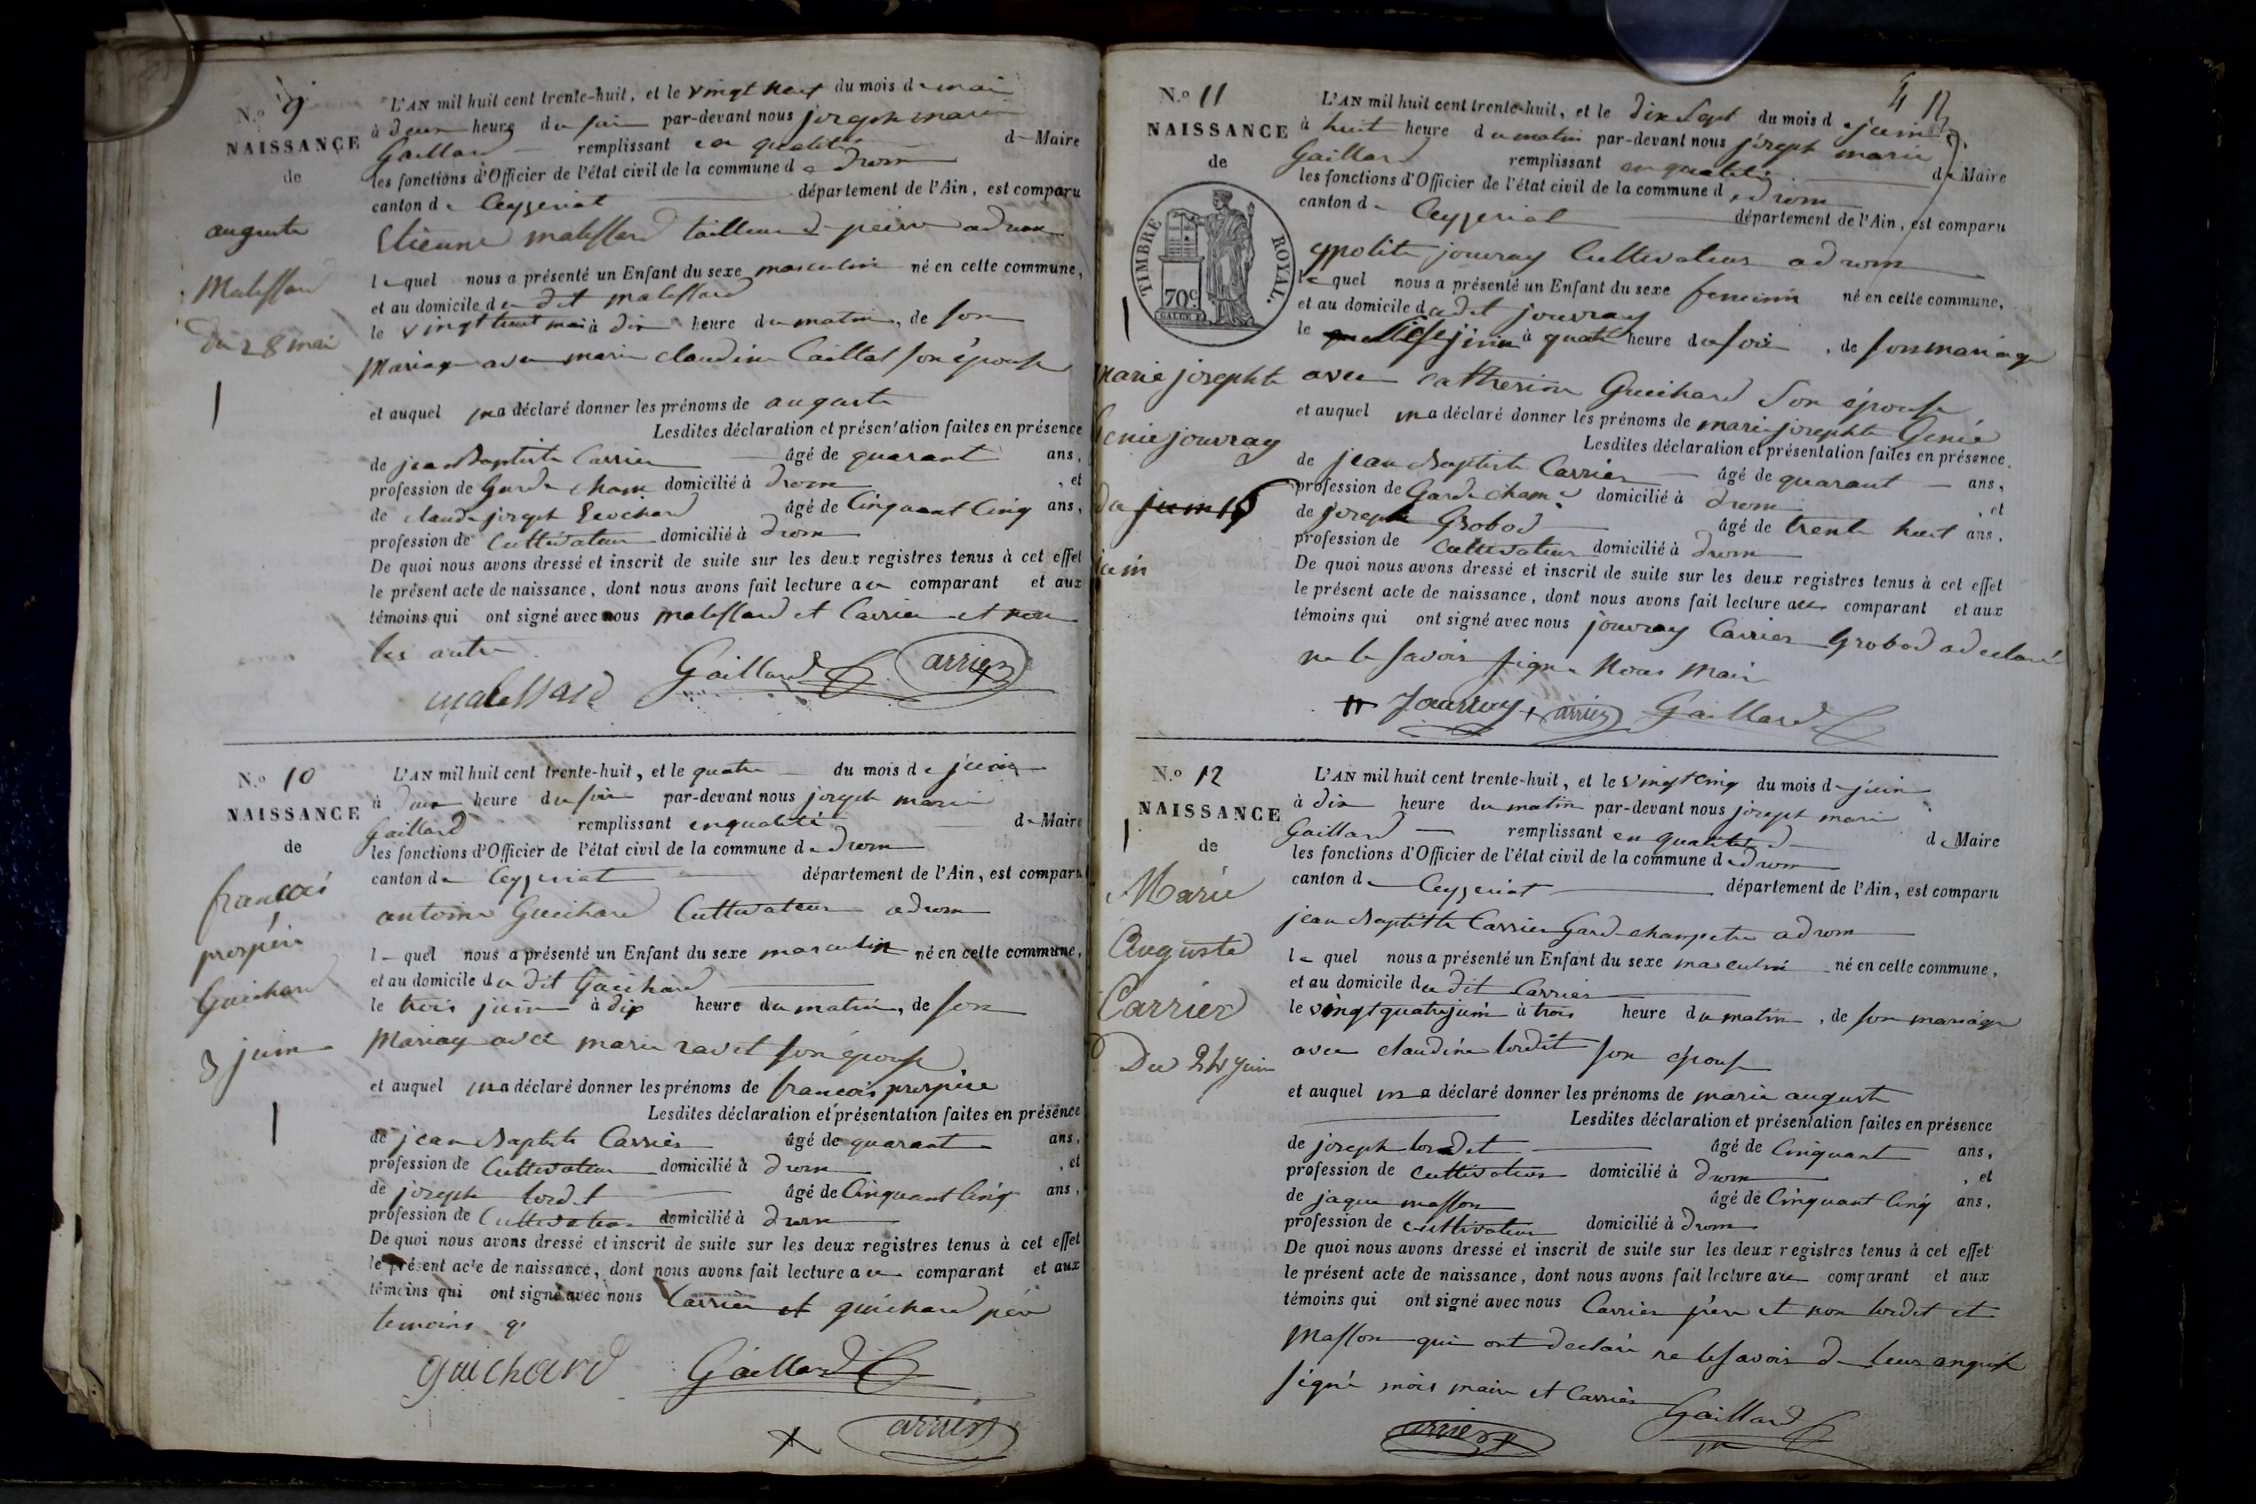 N.o 9
NAISSANCE
de
auguste
Malessard
du 28 mai
L'AN mil huit cent trente-huit, et le vingt neuf du mois de mai
à deux heure du soir par-devant nous joseph marie
Gaillard remplissant en qualité de Maire
les fonctions d'Officier de l'état civil de la commune de drom
canton de Ceyzeriat département de l'Ain, est comparu
Etienne malessard tailleur de peire a drom
lequel nous a présenté un Enfant du sexe masculin né en cette commune,
et au domicile du dit malessard
le vingt huit mai à dix heure du matin, de son
Mariage avec marie claudine Caillat son épouse
et auquel ma déclaré donner les prénoms de auguste
Lesdites déclaration et présentation faites en présence
de jean Baptiste Carrier âgé de quarant ans,
profession de Garde cham domicilié à drom, et
de claude joseph âgé de Cinquant Cinq ans,
profession de Cultivateur domicilié à drom
De quoi nous avons dressé et inscrit de suite sur les deux registres tenus à cet effet
le présent acte de naissance, dont nous avons fait lecture au comparant et aux
témoins qui ont signé avec nous malessard et Carrier et non
les autre
malessard Gaillard Carrier
N.o 10
NAISSANCE
de
francois
prospère
Guichard
3 juin
L'AN mil huit cent trente-huit, et le quatre du mois de juin
à deux heure du soir par-devant nous joseph marie
Gaillard remplissant en qualité de Maire
les fonctions d'Officier de l'état civil de la commune de drom
canton de Ceyzeriat département de l'Ain, est comparu
antoine Guichard Cultivateur a drom
lequel nous a présenté un Enfant du sexe masculin né en cette commune,
et au domicile du dit Guichard
le trois juin à dix heure du matin, de son
Mariage avec marie ravet son épouse
et auquel ma déclaré donner les prénoms de francois prospère
Lesdites déclaration et présentation faites en présence
de jean Baptiste Carrier âgé de quarant ans,
profession de Cultivateur domicilié à drom, et
de joseph tordet âgé de Cinquant Cinq ans,
profession de Cultivateur domicilié à drom
De quoi nous avons dressé et inscrit de suite sur les deux registres tenus à cet effet
le présent acte de naissance, dont nous avons fait lecture au comparant et aux
témoins qui ont signé avec nous Carrier et guichard père
temoins
guichard Gaillard
Carrier
N.o 11
NAISSANCE
de
TIMBRE ROYAL.
70c
marie josephte
Genie jouvray
du juin 16
juin
L'AN mil huit cent trente-huit, et le dix Sept du mois de juin
à huit heure du matin par-devant nous joseph marie
Gaillard remplissant en qualité de Maire
les fonctions d'Officier de l'état civil de la commune de drom
canton de Ceyzeriat département de l'Ain, est comparu
ypolite jouvray Cultivateur a drom
lequel nous a présenté un Enfant du sexe feminin né en cette commune,
et au domicile du dit jouvray
le seize juin à quatre heure du soir, de son mariage
avec catherine Guichard Son épouse
et auquel ma déclaré donner les prénoms de marie josephte Genie
Lesdites déclaration et présentation faites en présence
de jean Baptiste Carrier âgé de quarant ans,
profession de Garde cham domicilié à drom, et
de joseph Grobod âgé de trente huit ans,
profession de Cultivateur domicilié à drom
De quoi nous avons dressé et inscrit de suite sur les deux registres tenus à cet effet
le présent acte de naissance, dont nous avons fait lecture au comparant et aux
témoins qui ont signé avec nous jouvray Carrier Grobod a declaré
ne le savoir signe Nous Maire
Jouvray Carrier Gaillard
N.o 12
NAISSANCE
de
Marie
Auguste
Carrier
Du 24 juin
L'AN mil huit cent trente-huit, et le vingt cinq du mois de juin
à dix heure du matin par-devant nous joseph marie
Gaillard remplissant en qualité de Maire
les fonctions d'Officier de l'état civil de la commune de drom
canton de Ceyzeriat département de l'Ain, est comparu
jean Baptiste Carrier Garde champetre a drom
lequel nous a présenté un Enfant du sexe masculin né en cette commune,
et au domicile du dit Carrier
le vingt quatre juin à trois heure du matin, de son mariage
avec claudine tordet son épouse
et auquel ma déclaré donner les prénoms de marie auguste
Lesdites déclaration et présentation faites en présence
de joseph tordet âgé de Cinquant ans,
profession de Cultivateur domicilié à drom, et
de jaque masson âgé de Cinquant Cinq ans,
profession de cultivateur domicilié à drom
De quoi nous avons dressé et inscrit de suite sur les deux registres tenus à cet effet
le présent acte de naissance, dont nous avons fait lecture au comparant et aux
témoins qui ont signé avec nous Carrier père et non tordet et
Masson qui ont declaré ne le savoir de leur enquis
signé mois maire et Carrier
Gaillard
Carrier